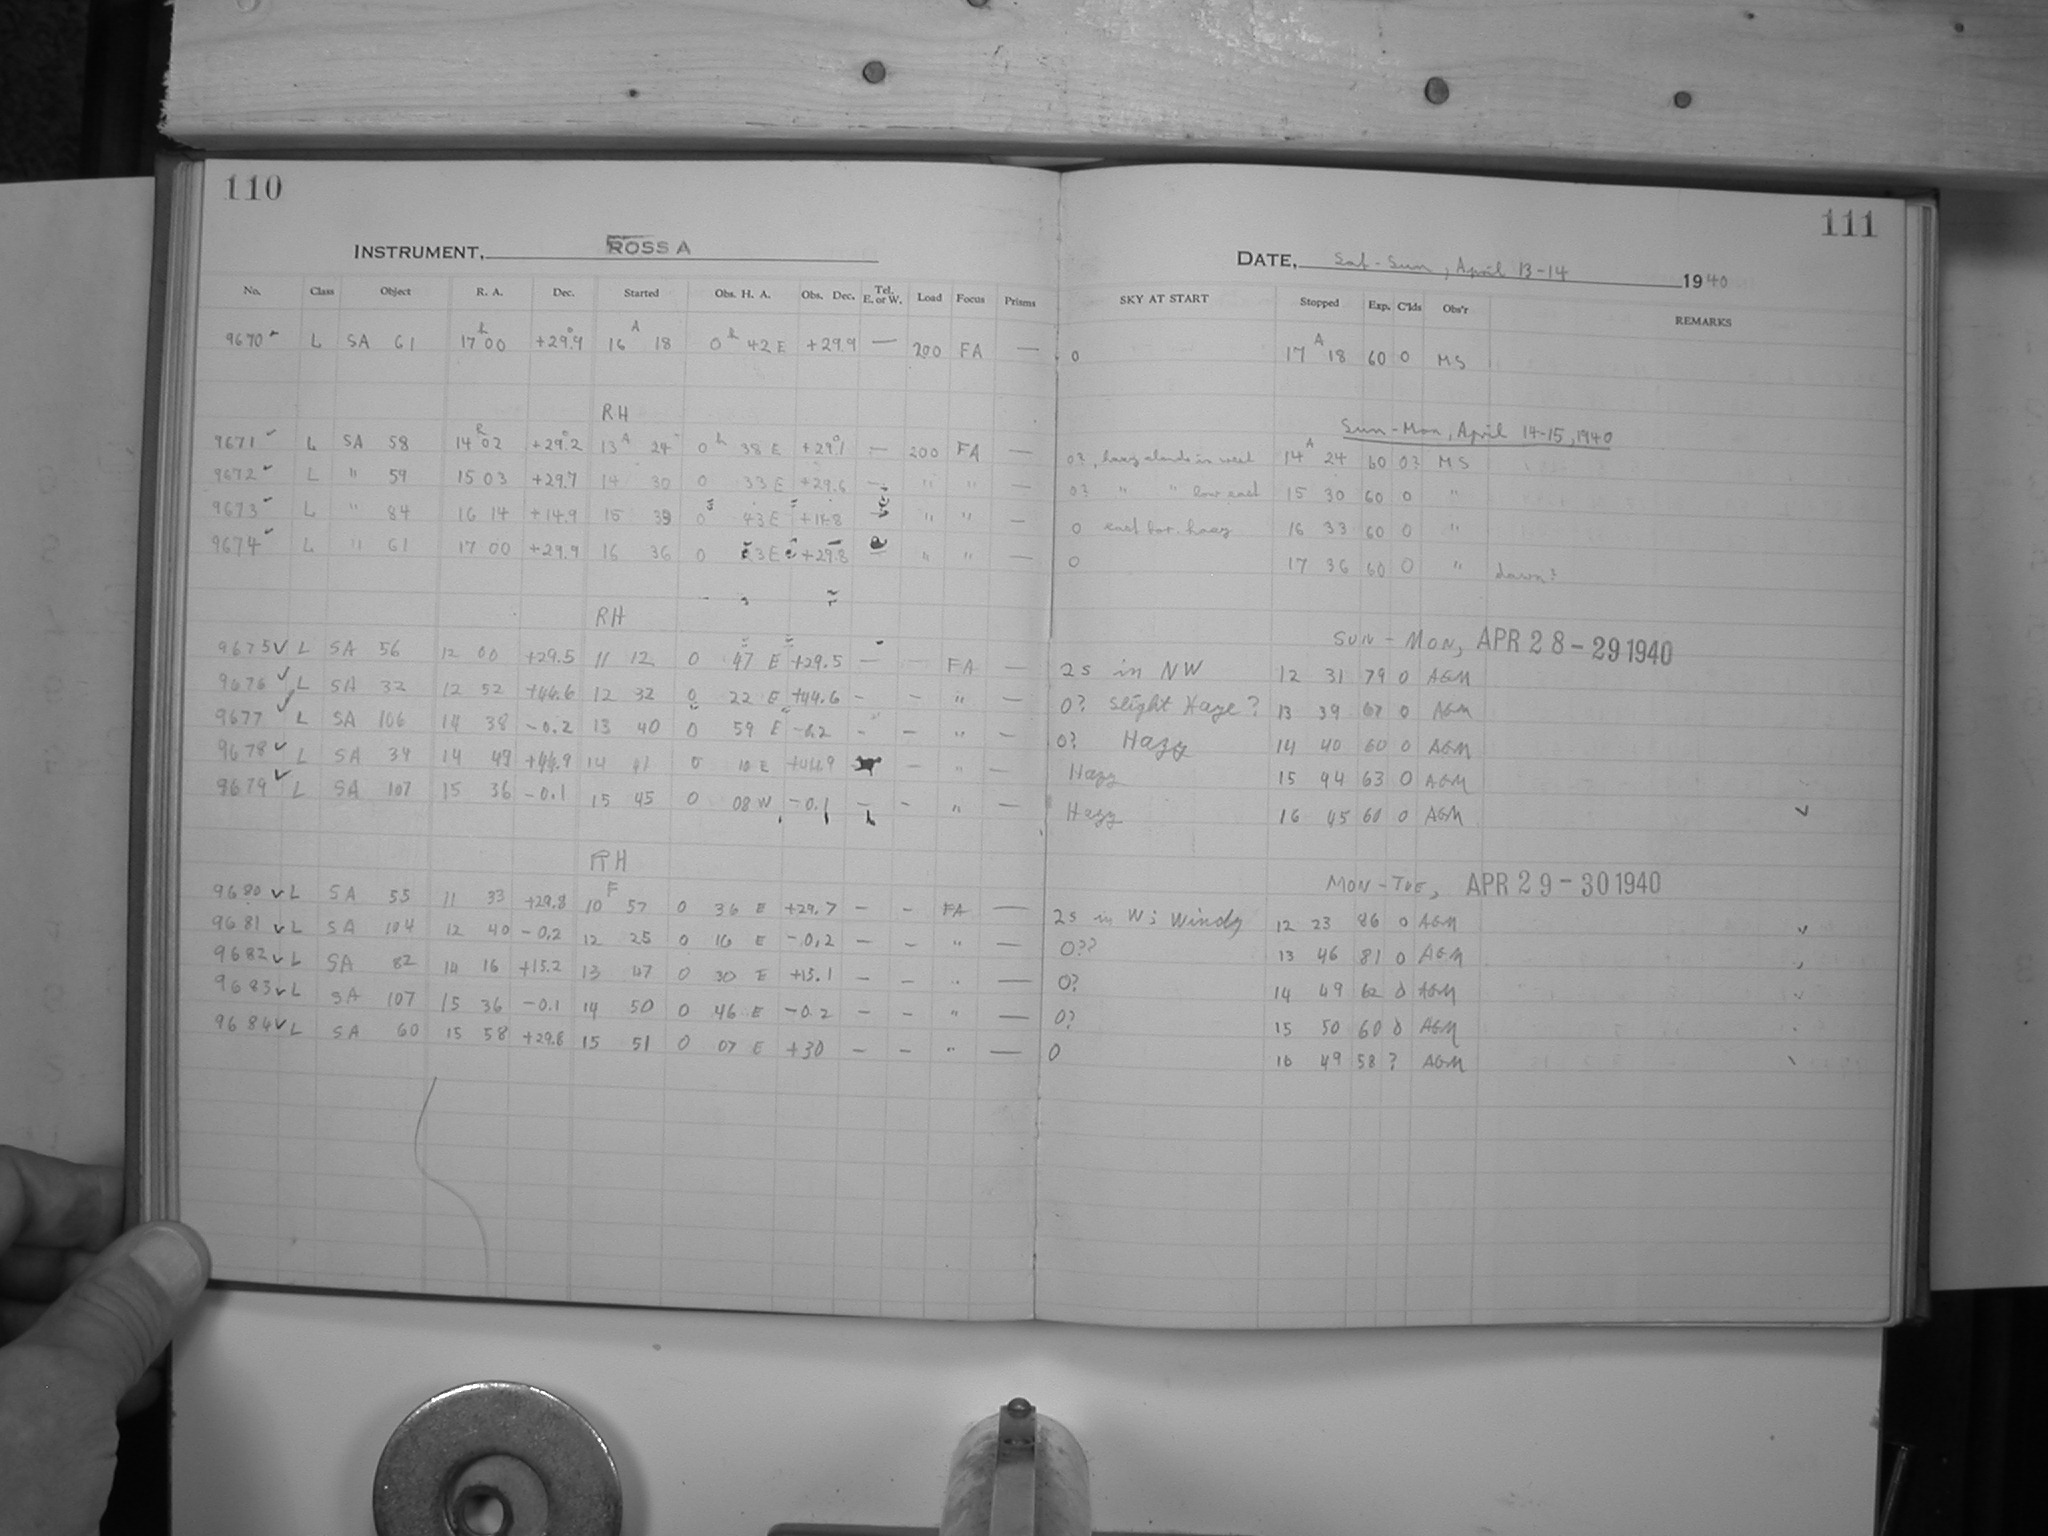 110
111
INSTRUMENT, ROSS A
DATE, Sat-Sun, April 13-14 1940
No. Class Object R. A. Dec. Started Obs. H. A. Obs. Dec. Tel. E. or W. Load Focus Prisms SKY AT START Stopped Exp. C'lds Obs'r REMARKS
9670 L SA 61 17 h 00 +29.9 16 A 18 0 h 42 E +29.9 — 200 FA — 0 17 A 18 60 0 MS
RH
Sun-Mon, April 14-15, 1940
9671 L SA 58 14 h 02 +29.2 13 A 24 0 h 38 E +29.1 — 200 FA — 0?, hazy clouds in west 14 A 24 60 0? MS
9672 L " 59 15 03 +29.7 14 30 0 33 E +29.6 — " " — 0? " " low east 15 30 60 0 "
9673 L " 84 16 14 +14.9 15 33 0 43 E +14.8 " " — 0 east hor. hazy 16 33 60 0 "
9674 L " 61 17 00 +29.9 16 36 0 3 E +29.8 " " — 0 17 36 60 0 " dawn?
RH
SUN - MON, APR 28-29 1940
9675 ✓ L SA 56 12 00 +29.5 11 12 0 47 E +29.5 — FA — 2s in NW 12 31 79 0 AGM
9676 ✓ L SA 32 12 52 +44.6 12 32 0 22 E +44.6 - - " - 0? slight Haze? 13 39 67 0 AGM
9677 ✓ L SA 106 14 38 -0.2 13 40 0 59 E -0.2 - - " - 0? Hazy 14 40 60 0 AGM
9678 ✓ L SA 34 14 49 +44.9 14 41 0 10 E +44.9 - " - Hazy 15 44 63 0 AGM
9679 ✓ L SA 107 15 36 -0.1 15 45 0 08 W -0.1 - - " - Hazy 16 45 60 0 AGM ✓
RH
MON-TUE, APR 29-30 1940
9680 ✓ L SA 55 11 33 +29.8 10 F 57 0 36 E +29.7 - - FA — 2s in W; Windy 12 23 86 0 AGM ✓
9681 ✓ L SA 104 12 40 -0.2 12 25 0 16 E -0.2 - - " — 0?? 13 46 81 0 AGM
9682 ✓ L SA 82 14 16 +15.2 13 47 0 30 E +15.1 - - " — 0? 14 49 62 0 AGM
9683 ✓ L SA 107 15 36 -0.1 14 50 0 46 E -0.2 - - " — 0? 15 50 60 0 AGM
9684 ✓ L SA 60 15 58 +29.8 15 51 0 07 E +30 - - " — 0 16 49 58 ? AGM